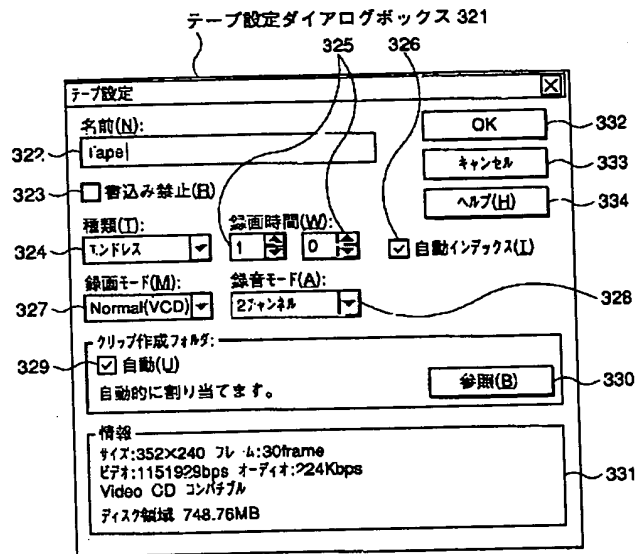 テープ設定ダイアログボックス 321
325
326
テープ設定
名前(N):
OK
332
322
Tape
キャンセル
333
323
書込み禁止(R)
ヘルプ(H)
334
種類(T):
録画時間(W):
324
エンドレス
1
0
自動インデックス(I)
録画モード(M):
録音モード(A):
327
Normal(VCD)
2チャンネル
328
クリップ作成フォルダ:
329
自動(U)
自動的に割り当てます。
参照(B)
330
情報
サイズ:352×240 フレーム:30frame
ビデオ:1151929bps オーディオ:224Kbps
Video CD コンパチブル
ディスク領域 748.76MB
331